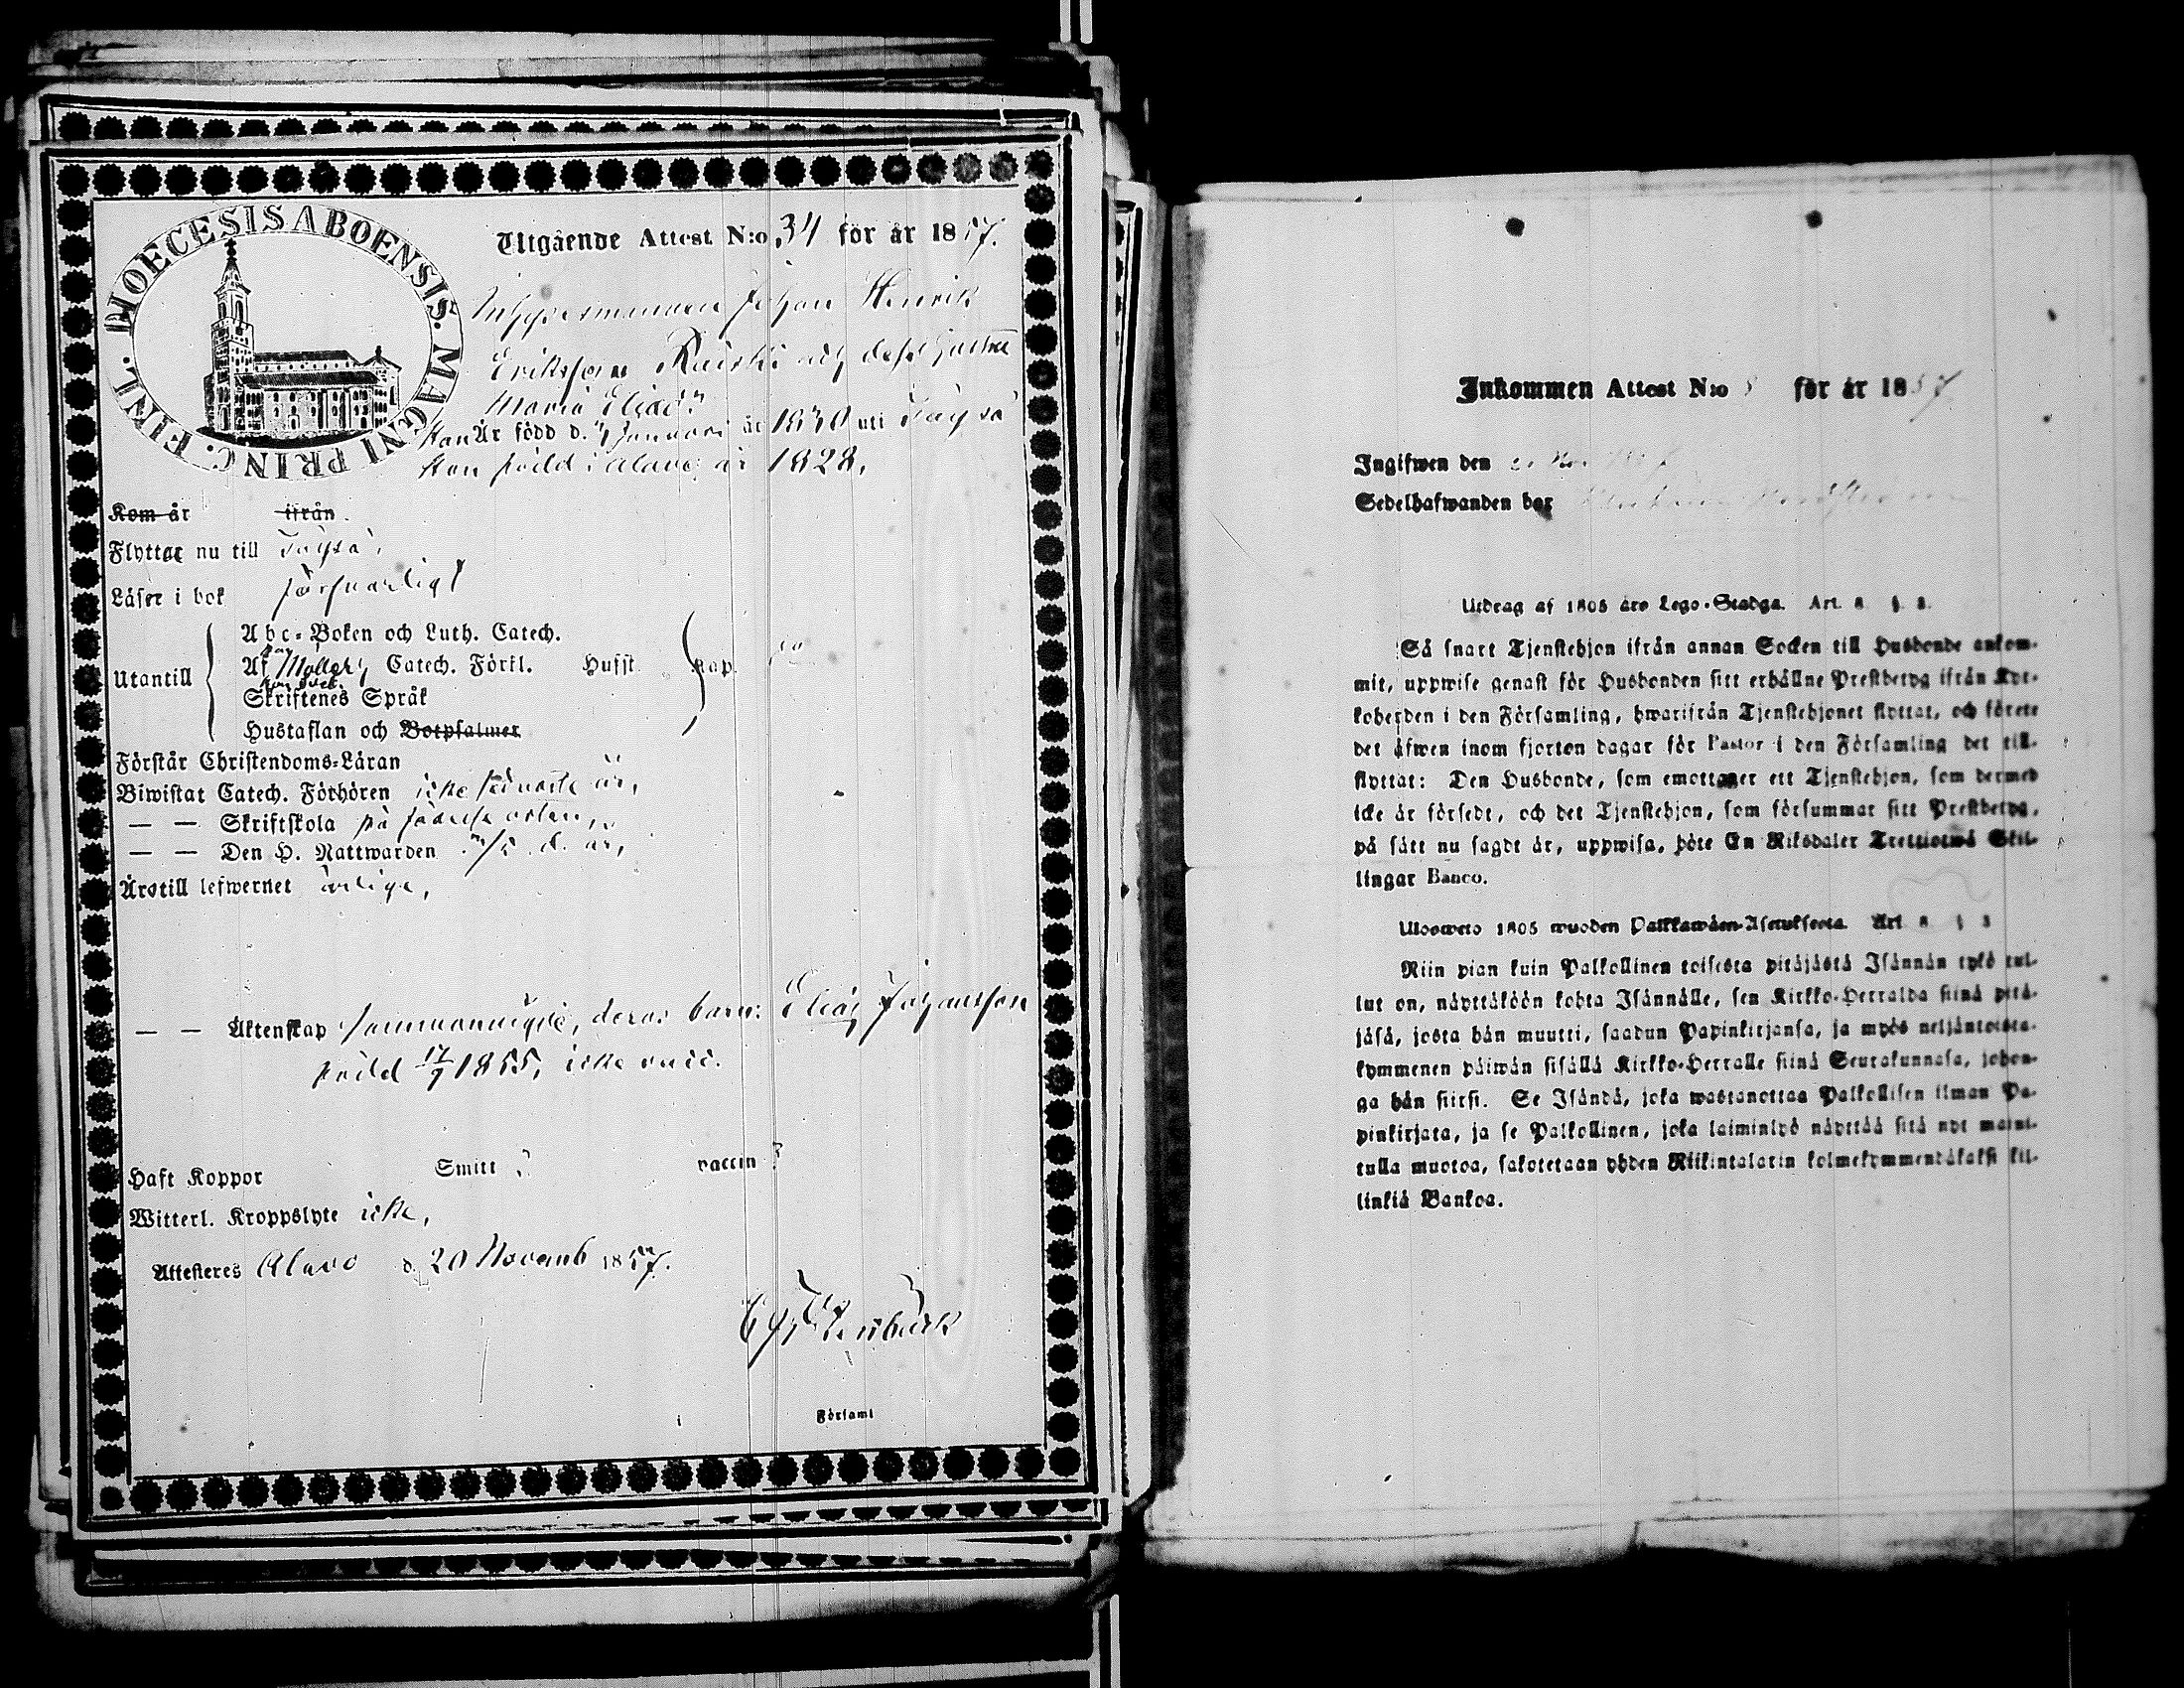 DIOECESIS ABOENSIS. MAGNI PRINC. FINL.
Utgående Attest N:o 34 för år 1857.
Inhysesmannen Johan Henrik
Eriksson Raiski och dess hustru
Maria Eliaed:r
Han Är född d. Januari år 1830 uti Töysä
Hon född i Alavo år 1828.
Kom år ifrån
Flyttar nu till Töysä,
Läser i bok försvarligt
Utantill
Abc-Boken och Luth. Catech.
Af Möllers Catech. Förkl. Husst. kap.
Skriftenes Språk
Hustaflan och Botpsalmer
Förstår Christendoms-Läran
Biwistat Catech. Förhören icke sednaste år,
— — Skriftskola på födelse orten,
— — Den H. Nattwarden d. år,
Äro till lefwernet ärliga,
— — Äktenskap sammanvigde, deras barn: Elias Johansson
född 17/9 1855, icke vacc.
Haft Koppor Smitt ? vaccin ?
Witterl. Kroppslyte icke,
Attesteras Alavo d. 20 Novemb 1857.
Förſaml
Inkommen Attest N:o för år 1857
Ingifwen den
Sedelhafwanden bor
Utdrag af 1805 års Lego-Stadga. Art. 8 §. 8.
Så snart Tjenstehjon ifrån annan Socken till Husbonde ankom-
mit, uppwise genast för Husbonden sitt erhållne Prestbetyg ifrån Kyr-
koherden i den Församling, hwarifrån Tjenstehjonet flyttat, och förete
det äfwen inom fjorton dagar för Pastor i den Församling det till-
flyttat: Den Husbonde, som emottager ett Tjenstehjon, som dermed
icke är försedt, och det Tjenstehjon, som försummar sitt Prestbetyg,
på sätt nu sagdt är, uppwisa, böte En Riksdaler Trettiotwå Skil-
lingar Banco.
Uloswето 1805 wuoden Palkkawäen-Asetuksesta. Art 8 § 8
Niin pian kuin Palkollinen toisesta pitäjästä Isännän tykö tul-
lut on, näyttäköön kohta Isännälle, sen Kirkko-Herralda siinä pitä-
jäsä, josta hän muutti, saadun Papinkirjansa, ja myös neljäntoista-
kymmenen päiwän sisällä Kirkko-Herralle siinä Seurakunnasa, johon-
ga hän siirsi. Se Isändä, joka wastanottaa Palkollisen ilman Pa-
pinkirjata, ja se Palkollinen, joka laiminlyö näyttää sitä nyt maini-
tulla muotoa, sakotetaan yhden Riikintalarin kolmekymmendäkaksi kil-
linkiä Bankoa.